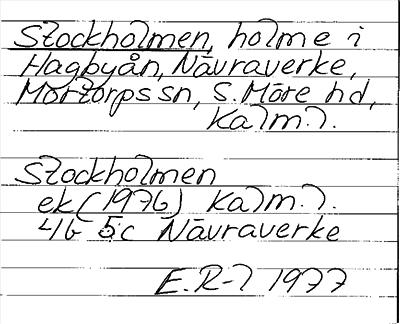 Stockholmen, holme i
Hagbyån, Nävraverke,
Mortorps sn, S. Möre hd,
Kalm. l.
Stockholmen
ek (1976) Kalm. l.
4G 5c Nävraverke
E. R-l 1977